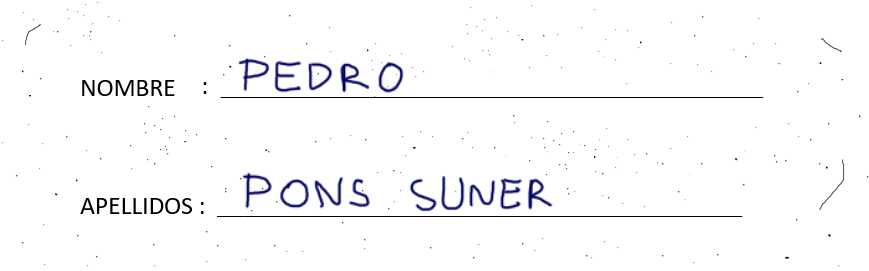 NOMBRE : PEDRO
APELLIDOS : PONS SUNER